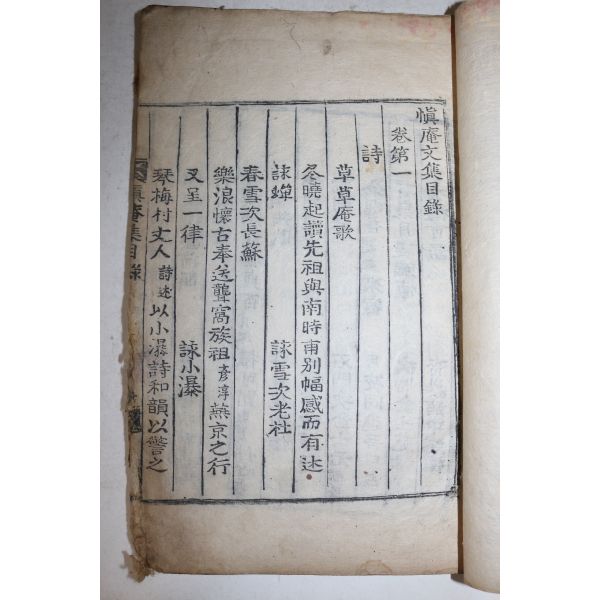 愼庵文集目錄
卷第一
詩
草草庵歌
冬曉起讀先祖與南時甫別幅感而有述
詠蟬 詠雪次老杜
春雪次長蘇
樂浪懷古奉送聾窩族祖彦淳燕京之行
又呈一律 詠小瀑
琴梅村丈人詩述以小瀑詩和韻以警之
愼庵集目錄